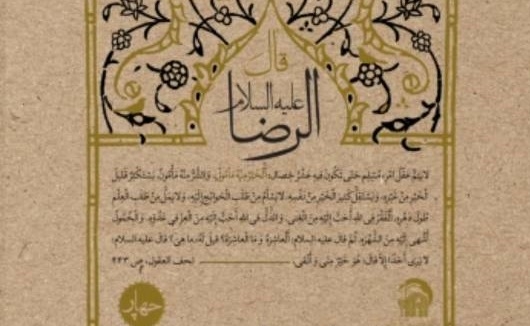 قال
الرضا
علیه السلام
لا يَتِمُّ عَقْلُ امْرِءٍ مُسْلِمٍ حَتّى تَكُونَ فيهِ عَشْرُ خِصالٍ: اَلْخَيْرُ مِنْهُ مَأمُولٌ. وَ الشَّرُّ مِنْهُ مَأْمُونٌ. يَسْتَكْثِرُ قَليلَ
الْخَيْرِ مِنْ غَيْرِهِ، وَ يَسْتَقِلُّ كَثيرَ الْخَيْرِ مِنْ نَفْسِهِ. لا يَسْأَمُ مِنْ طَلَبِ الْحَوائِجِ إلَيْهِ، وَ لا يَمَلُّ مِنْ طَلَبِ الْعِلْمِ
طُولَ دَهْرِهِ. اَلْفَقْرُ فِى اللهِ أَحَبُّ إلَيْهِ مِنَ الْغِنى. وَ الذُّلُّ فى اللهِ أَحَبُّ إلَيْهِ مِنَ الْعِزِّ فى عَدُوِّهِ. وَ الْخُمُولُ
أَشْهى إلَيْهِ مِنَ الشُّهْرَةِ. ثُمَّ قالَ علیه السلام: اَلْعاشِرَةُ وَ مَا الْعاشِرَةُ؟ قيلَ لَهُ: ما هِىَ؟ قالَ علیه السلام:
لا يَرى أَحَدًا إلاّ قالَ: هُوَ خَيْرٌ مِنّى وَ أَتْقى. تحف العقول، ص ۴۴۳
چهار